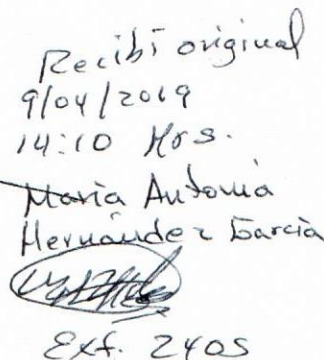 Recibí original
9/04/2019
14:10 Hrs.
María Antonia
Hernández García
Ext. 2405